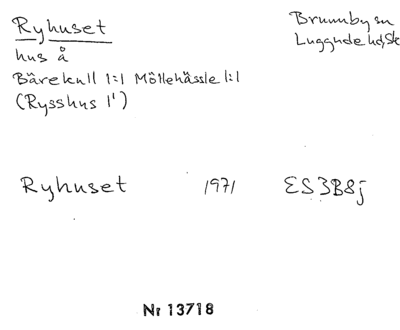 Ryhuset
Brunnby sn
hus å
Luggude hd, Sk
Bärekull 1:1 Möllehässle 1:1
(Rysshus l')
Ryhuset 1971 ES3B8j
Nr 13718